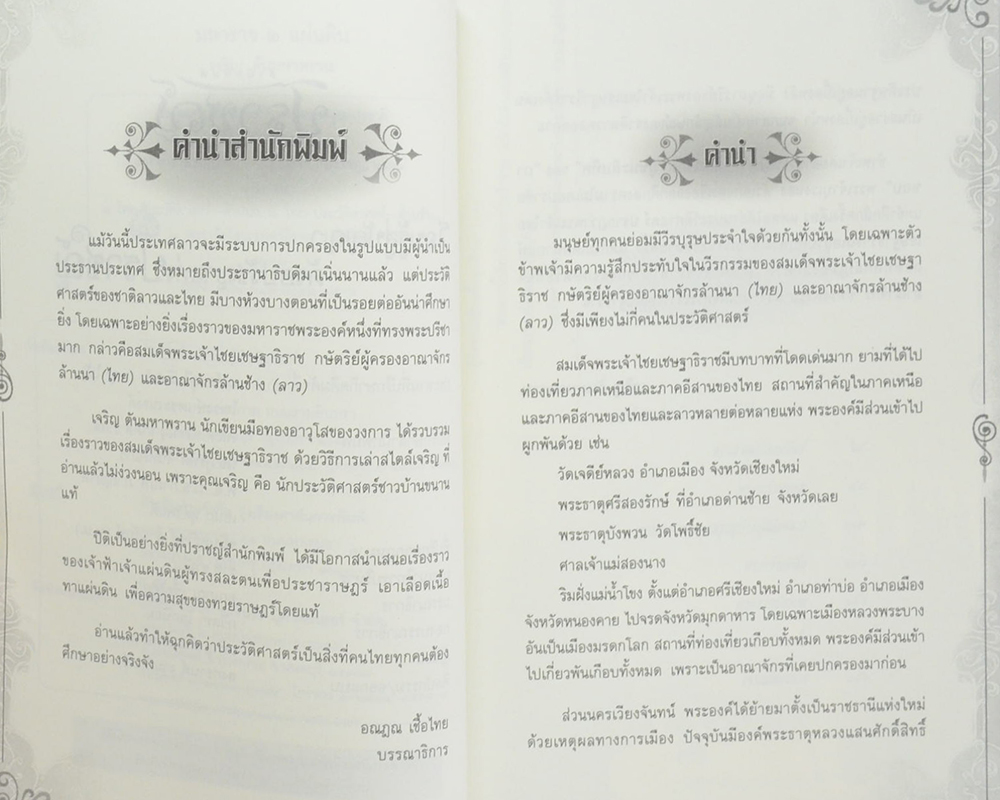 คำนำสำนักพิมพ์
แม้วันนี้ประเทศลาวจะมีระบบการปกครองในรูปแบบมีผู้นำเป็น
ประธานประเทศ ซึ่งหมายถึงประธานาธิบดีมาเนิ่นนานแล้ว แต่ประวัติ
ศาสตร์ของชาติลาวและไทย มีบางห้วงบางตอนที่เป็นรอยต่ออันน่าศึกษา
ยิ่ง โดยเฉพาะอย่างยิ่งเรื่องราวของมหาราชพระองค์หนึ่งที่ทรงพระปรีชา
มาก กล่าวคือสมเด็จพระเจ้าไชยเชษฐาธิราช กษัตริย์ผู้ครองอาณาจักร
ล้านนา (ไทย) และอาณาจักรล้านช้าง (ลาว)
เจริญ ตันมหาพราน นักเขียนมือทองอาวุโสของวงการ ได้รวบรวม
เรื่องราวของสมเด็จพระเจ้าไชยเชษฐาธิราช ด้วยวิธีการเล่าสไตล์เจริญ ที่
อ่านแล้วไม่ง่วงนอน เพราะคุณเจริญ คือ นักประวัติศาสตร์ชาวบ้านขนาน
แท้
ปิติเป็นอย่างยิ่งที่ปราชญ์สำนักพิมพ์ ได้มีโอกาสนำเสนอเรื่องราว
ของเจ้าฟ้าเจ้าแผ่นดินผู้ทรงสละตนเพื่อประชาราษฎร์ เอาเลือดเนื้อ
ทาแผ่นดิน เพื่อความสุขของทวยราษฎร์โดยแท้
อ่านแล้วทำให้ฉุกคิดว่าประวัติศาสตร์เป็นสิ่งที่คนไทยทุกคนต้อง
ศึกษาอย่างจริงจัง
อณฎณ เชื้อไทย
บรรณาธิการ
คำนำ
มนุษย์ทุกคนย่อมมีวีรบุรุษประจำใจด้วยกันทั้งนั้น โดยเฉพาะตัว
ข้าพเจ้ามีความรู้สึกประทับใจในวีรกรรมของสมเด็จพระเจ้าไชยเชษฐา
ธิราช กษัตริย์ผู้ครองอาณาจักรล้านนา (ไทย) และอาณาจักรล้านช้าง
(ลาว) ซึ่งมีเพียงไม่กี่คนในประวัติศาสตร์
สมเด็จพระเจ้าไชยเชษฐาธิราชมีบทบาทที่โดดเด่นมาก ยามที่ได้ไป
ท่องเที่ยวภาคเหนือและภาคอีสานของไทย สถานที่สำคัญในภาคเหนือ
และภาคอีสานของไทยและลาวหลายต่อหลายแห่ง พระองค์มีส่วนเข้าไป
ผูกพันด้วย เช่น
วัดเจดีย์หลวง อำเภอเมือง จังหวัดเชียงใหม่
พระธาตุศรีสองรักษ์ ที่อำเภอด่านซ้าย จังหวัดเลย
พระธาตุบังพวน วัดโพธิ์ชัย
ศาลเจ้าแม่สองนาง
ริมฝั่งแม่น้ำโขง ตั้งแต่อำเภอศรีเชียงใหม่ อำเภอท่าบ่อ อำเภอเมือง
จังหวัดหนองคาย ไปจรดจังหวัดมุกดาหาร โดยเฉพาะเมืองหลวงพระบาง
อันเป็นเมืองมรดกโลก สถานที่ท่องเที่ยวเกือบทั้งหมด พระองค์มีส่วนเข้า
ไปเกี่ยวพันเกือบทั้งหมด เพราะเป็นอาณาจักรที่เคยปกครองมาก่อน
ส่วนนครเวียงจันทน์ พระองค์ได้ย้ายมาตั้งเป็นราชธานีแห่งใหม่
ด้วยเหตุผลทางการเมือง ปัจจุบันมีองค์พระธาตุหลวงแสนศักดิ์สิทธิ์